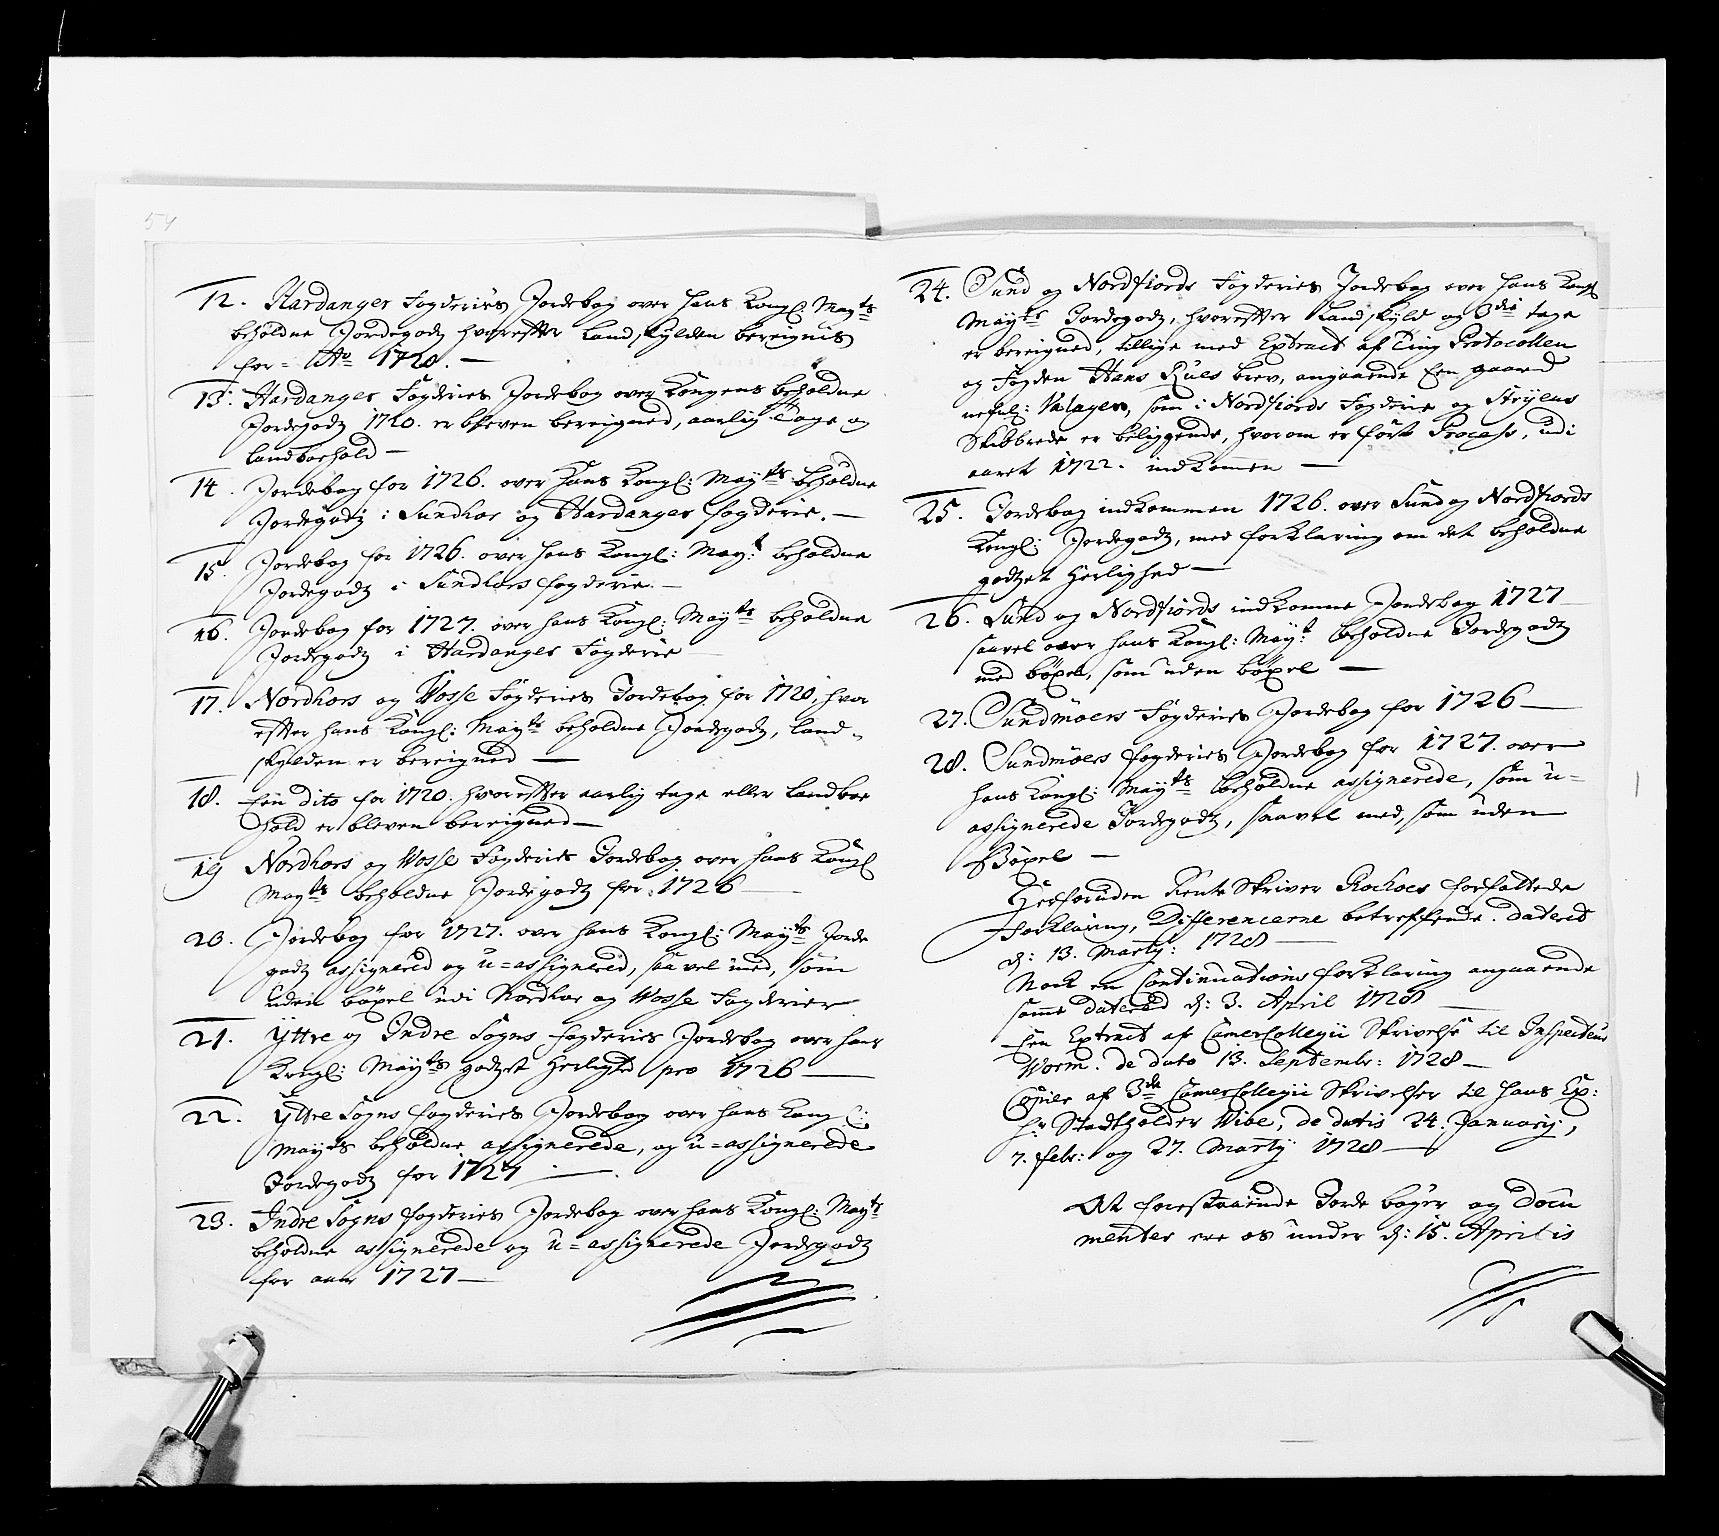 54
12. Hardanger Fogderies Jordebog over Hans Kongl: Mayts
beholdne Jordegodz hvorefter Landskylden bereignis
for = Ao 1720. —
13. Hardanger Fogderies Jordebog over Kongens beholdne
Jordegodz 1720. er bleven bereigned, aarlig Tage og
Landboehold —
14. Jordebog for 1726. over Hans Kongl: Mayts beholdne
Jordegodz i Sundhor og Hardanger fogderie. —
15. Jordebog for 1726. over Hans Kongl: Mayt: beholdne
Jordegodz i Sundhors fogderie. —
16. Jordebog for 1727. over Hans Kongl: Mayts beholdne
Jordegodz i Hardanger Fogderie
17. Nordhors og Vosse Fogderies Jordebog for 1720, hvor
efter Hans Kongl: Mayts beholdne Jordegodz, Land-
skylden er bereigned —
18. Een dito for 1720. hvorefter aarlig tage eller Landboe
hold er bleven bereigned —
19 Nordhors og Vosse Fogderies Jordebog over Hans Kongl
Mayts beholdne Jordegodz for 1726 —
20. Jordebog for 1727. over Hans Kongl: Mayts Jorde
godz assignered og u=assignered, saavel med, som
uden böxel udi Nordhor og Vosse Fogderier
21. Yttre og Indre Sogns fogderies Jordebog over Hans
Kongl: Mayts godzet Herlighed pro 1726 —
22. Yttre Sogns fogderies Jordebog over Hans Kongl:
Mayts beholdne assignerede, og u=assignerede
Jordegodz for 1727 —
23. Indre Sogns fogderies Jordebog over Hans Kongl: Mayts
beholdne assignerede og u=assignerede Jordegodz
for aar 1727 —
24. Sund og Nordfiords Fogderies Jordebog over Hans Kongl
Mayts Jordegodz, hvorefter Landskyld og 3die tage
er bereigned, tillige med Extract af Ting Protocollen
og Fogden Hans Rues brev, angaaende Een gaard
nefnl: Valager, som i Nordfiords Fogderie og Stryens
Skibbrede er beliggende, hvorom er ført Process, udi
aaret 1722. indkomen —
25. Jordebog indkommen 1726. over Sund og Nordfiords
Kongl: Jordegodz, med forklaring om det beholdne
godzet Herlighed —
26. Sund og Nordfiords indkomne Jordebog 1727
saavel over Hans Kongl: Mayt: beholdne Jordegodz
med böxel, som uden böxel —
27. Sundmöers Fogderies Jordebog for 1726 —
28. Sundmöers fogderies Jordebog for 1727. over
Hans Kongl: Mayts beholdne assignerede, som u=
assignerede Jordegodz, saavel med, som uden
Böxel —
Herforuden Rente Skriver Rochoes forfattede
Forklaring, Differencerne betreffende. dateret
d: 13. Marty: 1728 —
Nock en Continuations forklaring angaaende
samme dateret d: 3. April 1728 —
Een Extract af CamerCollegii Skrivelse til Inspecteur
Worm. de dato 13. Septembr: 1728 —
Copier af 3de CamerCollegii Skrivelser til Hans Ex:
Hr Stadtholder Vibe, de datis 24. January,
7. febr: og 27. Marty 1728 —
At forestaaende Jorde böger og Docu
menter ere os under d: 15. Aprilis